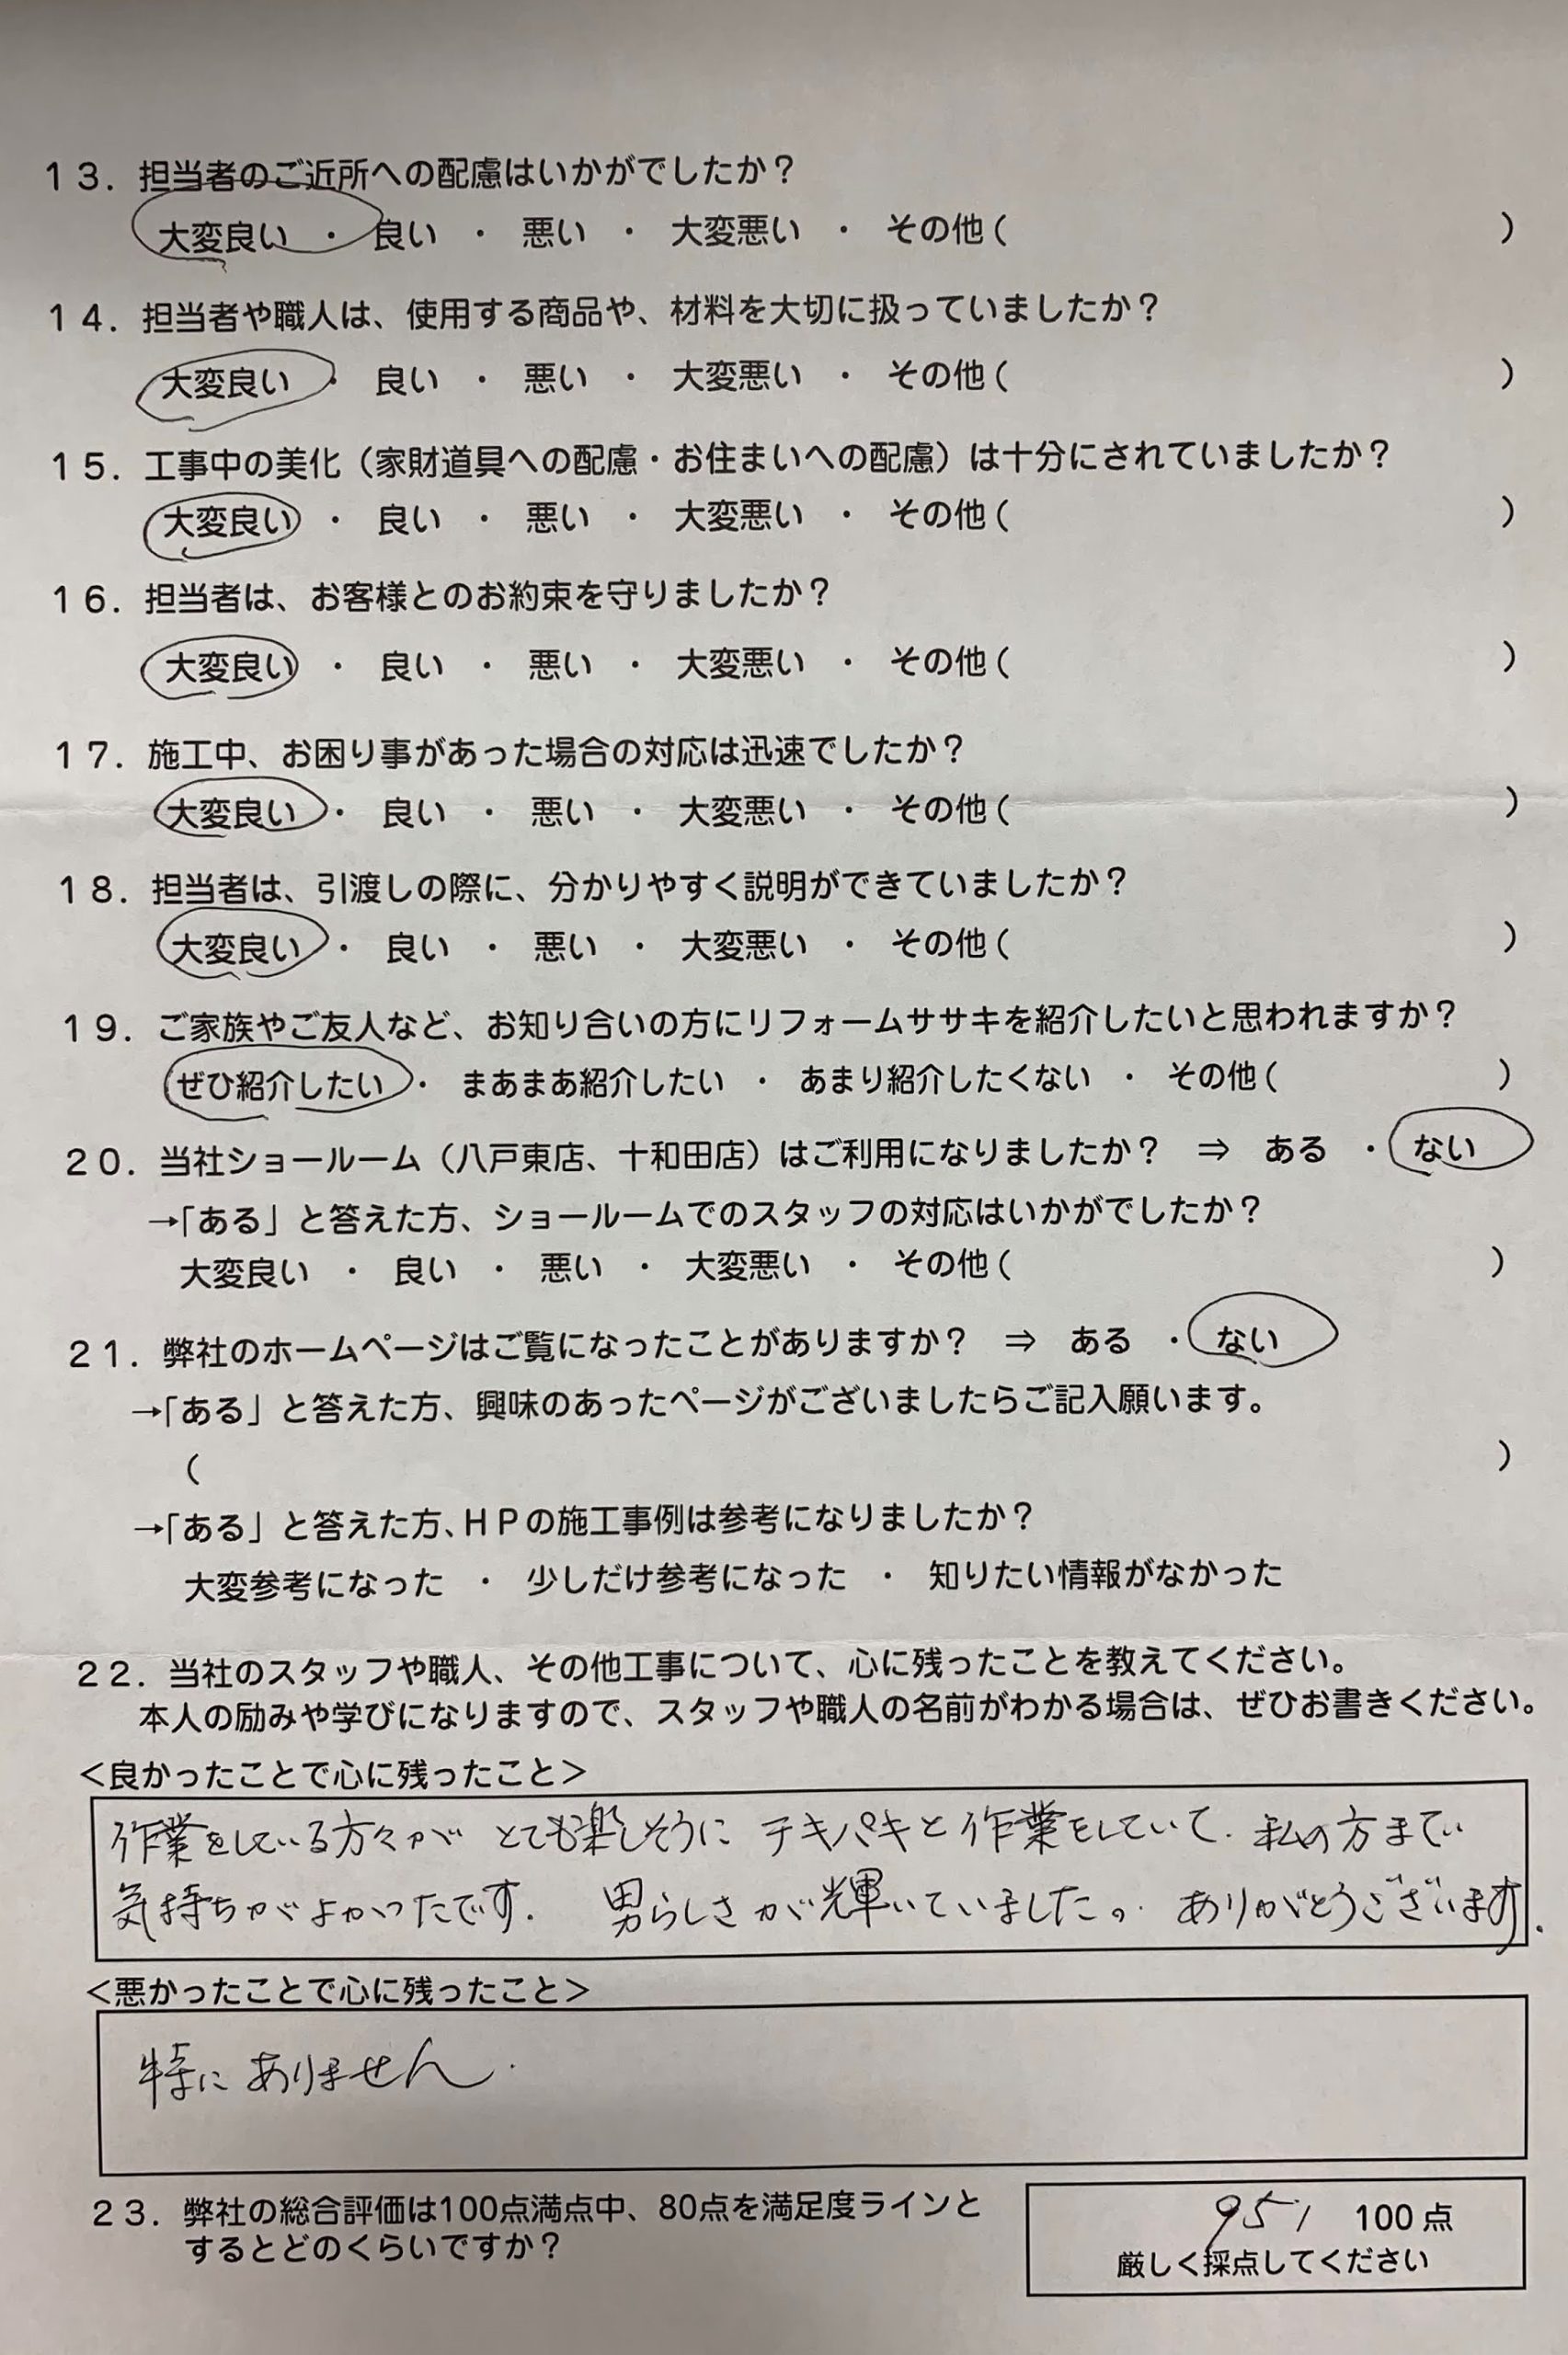 １３．担当者のご近所への配慮はいかがでしたか？
大変良い ・ 良い ・ 悪い ・ 大変悪い ・ その他（ ）
１４．担当者や職人は、使用する商品や、材料を大切に扱っていましたか？
大変良い ・ 良い ・ 悪い ・ 大変悪い ・ その他（ ）
１５．工事中の美化（家財道具への配慮・お住まいへの配慮）は十分にされていましたか？
大変良い ・ 良い ・ 悪い ・ 大変悪い ・ その他（ ）
１６．担当者は、お客様とのお約束を守りましたか？
大変良い ・ 良い ・ 悪い ・ 大変悪い ・ その他（ ）
１７．施工中、お困り事があった場合の対応は迅速でしたか？
大変良い ・ 良い ・ 悪い ・ 大変悪い ・ その他（ ）
１８．担当者は、引渡しの際に、分かりやすく説明ができていましたか？
大変良い ・ 良い ・ 悪い ・ 大変悪い ・ その他（ ）
１９．ご家族やご友人など、お知り合いの方にリフォームササキを紹介したいと思われますか？
ぜひ紹介したい ・ まあまあ紹介したい ・ あまり紹介したくない ・ その他（ ）
２０．当社ショールーム（八戸東店、十和田店）はご利用になりましたか？ ⇒ ある ・ ない
→「ある」と答えた方、ショールームでのスタッフの対応はいかがでしたか？
大変良い ・ 良い ・ 悪い ・ 大変悪い ・ その他（ ）
２１．弊社のホームページはご覧になったことがありますか？ ⇒ ある ・ ない
→「ある」と答えた方、興味のあったページがございましたらご記入願います。
（ ）
→「ある」と答えた方、ＨＰの施工事例は参考になりましたか？
大変参考になった ・ 少しだけ参考になった ・ 知りたい情報がなかった
２２．当社のスタッフや職人、その他工事について、心に残ったことを教えてください。
本人の励みや学びになりますので、スタッフや職人の名前がわかる場合は、ぜひお書きください。
＜良かったことで心に残ったこと＞
作業をしている方々が とても楽しそうに テキパキと作業をしていて. 私の方まで
気持ちがよかったです. 男らしさが輝いていました。 ありがとうございます.
＜悪かったことで心に残ったこと＞
特に ありません.
２３．弊社の総合評価は100点満点中、80点を満足度ラインと
するとどのくらいですか？
95/ 100点
厳しく採点してください